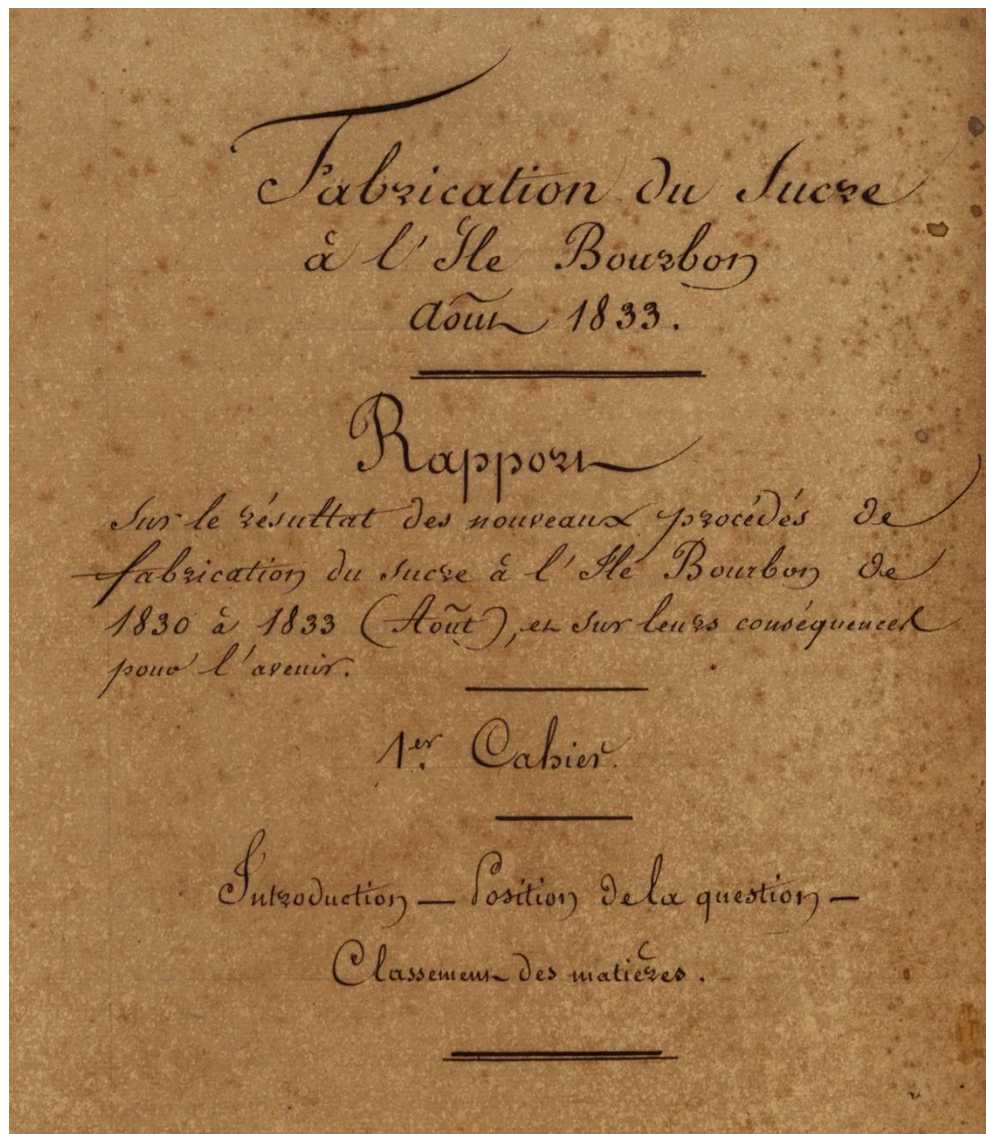 Fabrication du Sucre
à l'Ile Bourbon
Août 1833.
Rapport
sur le résultat des nouveaux procédés de
fabrication du sucre à l'Ile Bourbon de
1830 à 1833 (Août), et sur leurs conséquences
pour l'avenir.
1er Cahier.
Introduction — Position de la question —
Classement des matières.